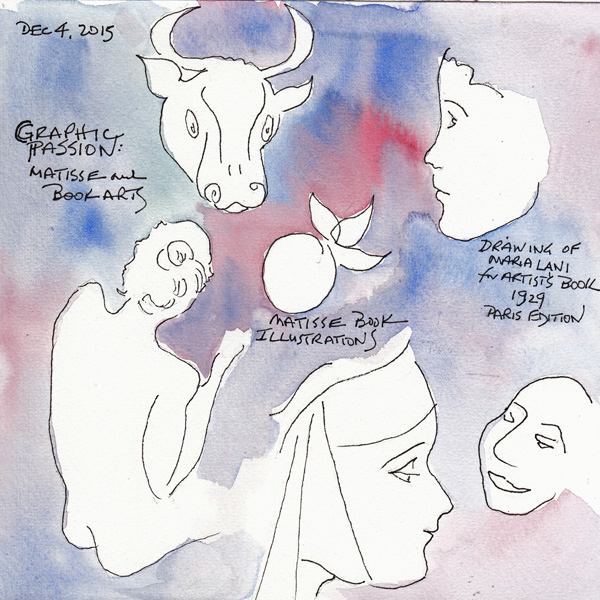 DEC 4, 2015
GRAPHIC
PASSION:
MATISSE and
BOOK ARTS
DRAWING OF
MARIA LANI
for ARTIST'S BOOK
1929
PARIS EDITION
MATISSE BOOK
ILLUSTRATIONS